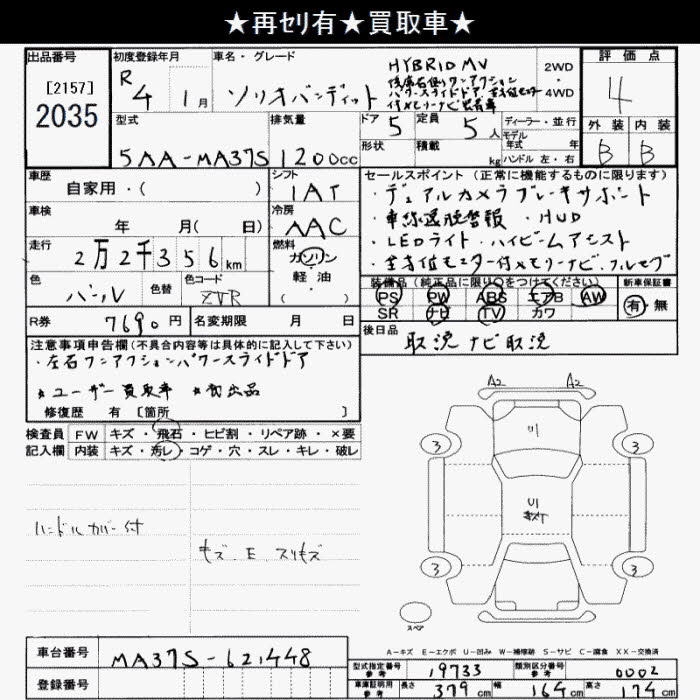 ★再セリ有★買取車★
出品番号
[2157]
2035
初度登録年月
R 4 1月
車名・グレード
ソリオバンディット
HYBRID MV
後席右側ワンアクション
パワースライドドア 全方位モニター
付メモリーナビ装着車
2WD
・
4WD
評価点
4
外装 内装
B B
型式
5AA-MA37S
排気量
1200cc
ドア
5
定員
5人
形状
積載
kg
ディーラー・並行
モデル
年式 年
ハンドル 左・右
車歴
自家用・( )
シフト
IAT
車検
年 月( 日)
冷房
AAC
走行
2万2千356km
燃料
ガソリン
・
軽・油
( )
色
パール
色替
色コード
ZVR
R券
7690円
名変期限 月 日
セールスポイント (正常に機能するものに限ります)
・デュアルカメラブレーキサポート
・車線逸脱警報 ・HUD
・LEDライト・ハイビームアシスト
・全方位モニター付メモリーナビ・フルセグ
装備品 (純正品に限り○をつけてください)
PS PW ABS エアB AW
SR ナビ TV カワ
新車保証書
有・無
後日品
取説 ナビ取説
注意事項申告欄(不具合内容等は具体的に記入して下さい)
・左右ワンアクションパワースライドドア
★ユーザー買取車 ★初出品
修復歴 有 [箇所 ]
検査員 FW キズ・飛石・ヒビ割・リペア跡・×要
記入欄 内装 キズ・汚レ・コゲ・穴・スレ・キレ・破レ
ハンドルカバー付
キズ E スリキズ
A2 A2
3 3
U1
U1
3 3
スペア
A-キズ E-エクボ U-凹み W-補修跡 S-サビ C-腐食 XX-交換済
車台番号
MA37S-621448
登録番号
型式指定番号
参考
19733
類別区分番号
参考
0002
車庫証明用
参考
長さ 379cm 幅 164cm 高さ 174cm